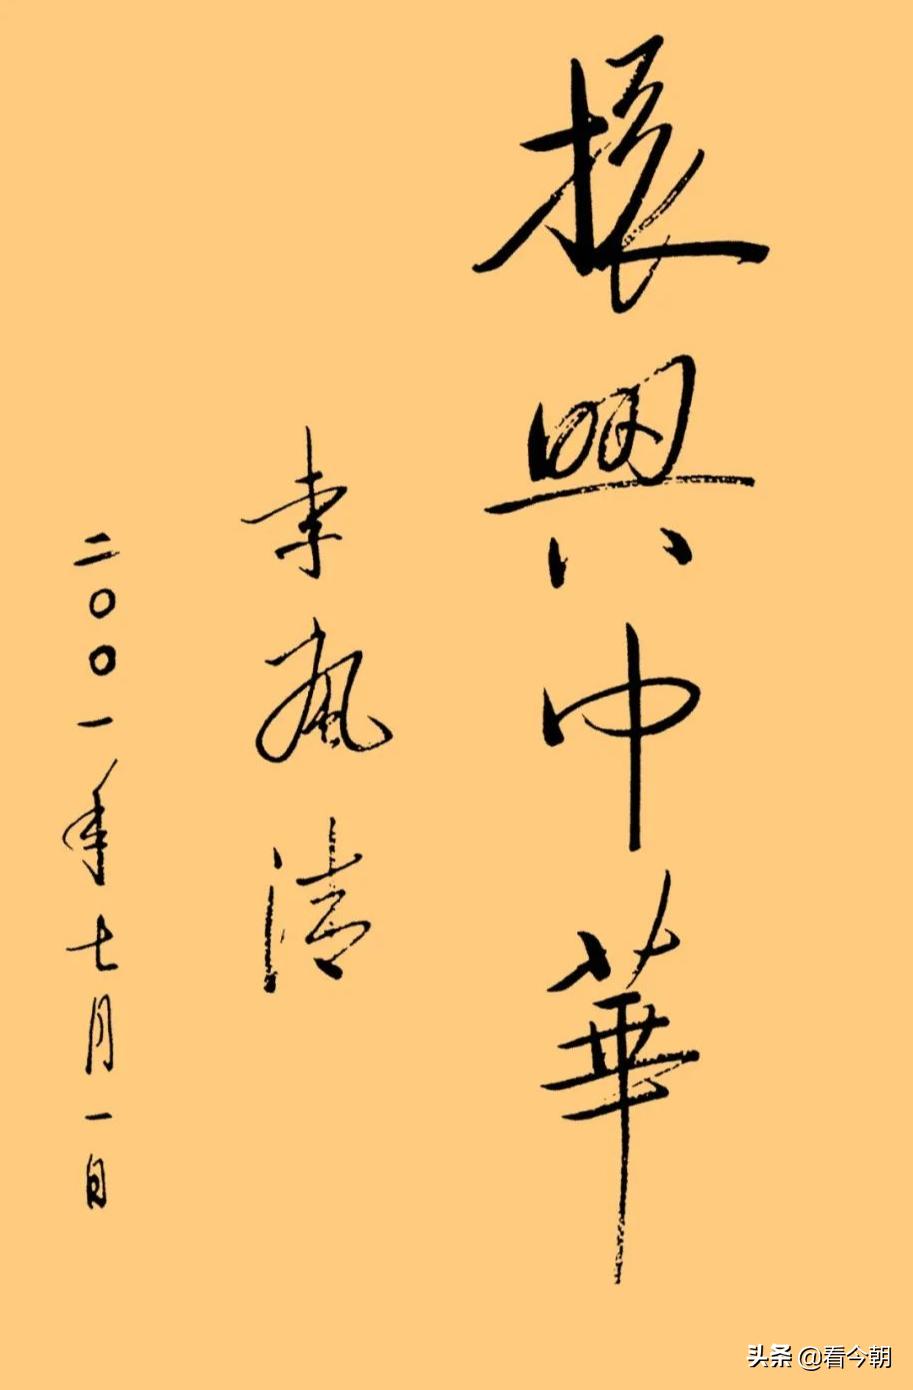 振興中華
李岚清
二〇〇一年七月一日
头条 @看今朝